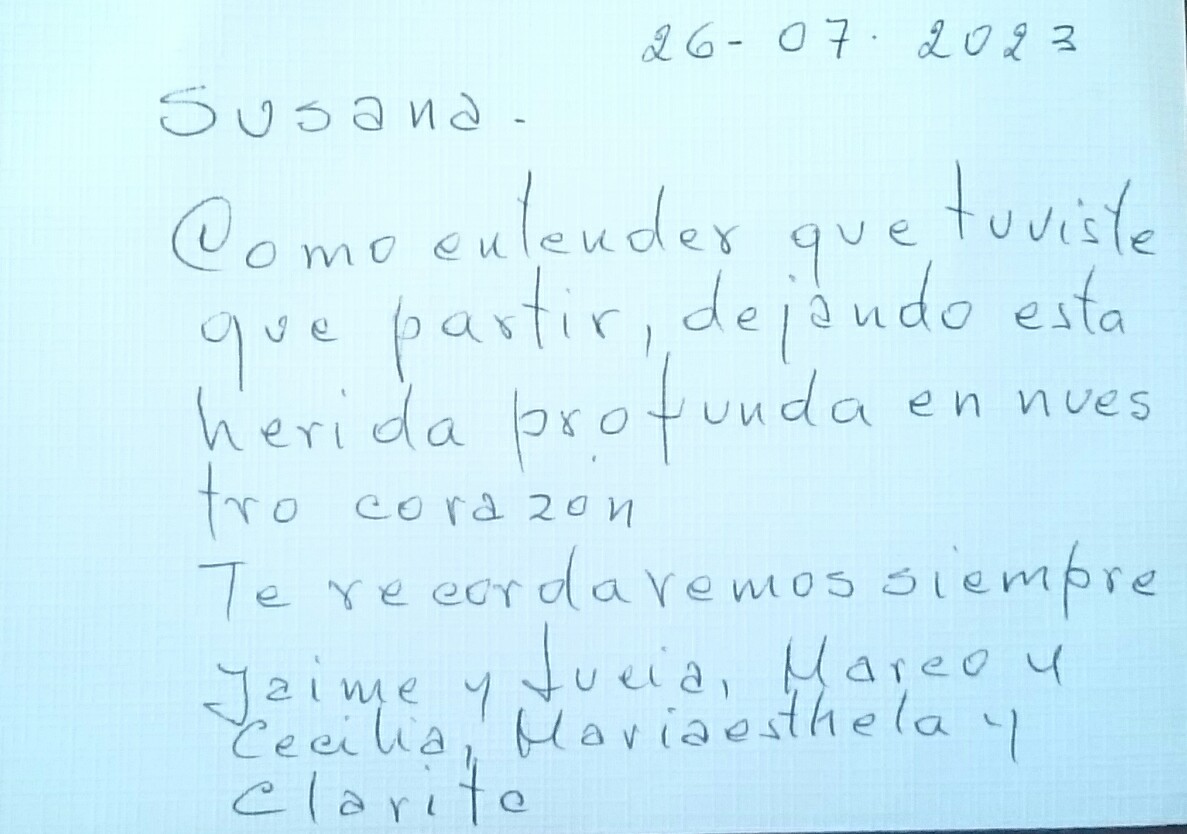 26-07. 2023
Susana.-
Como entender que tuviste
que partir, dejando esta
herida profunda en nues
tro corazon
Te recordaremos siempre
Jaime y Lucia, Marco y
Cecilia, Mariaesthela y
Clarita